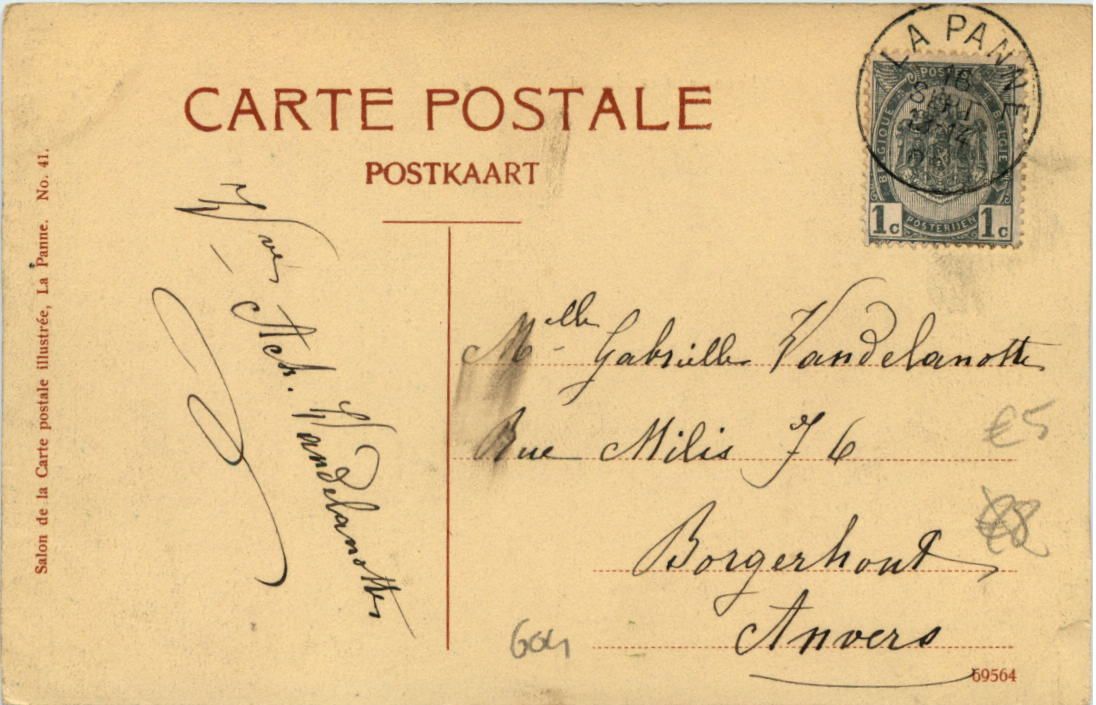 CARTE POSTALE
POSTKAART
LA PANNE
16
14
POSTES
BELGIQUE BELGIE
1c POSTERIJEN 1c
Salon de la Carte postale illustrée, La Panne. No. 41.
Ach. Vandelanotte
Melle Gabrielle Vandelanotte
Rue Milis 76
Borgerhout
Anvers
€5
€8
604
69564